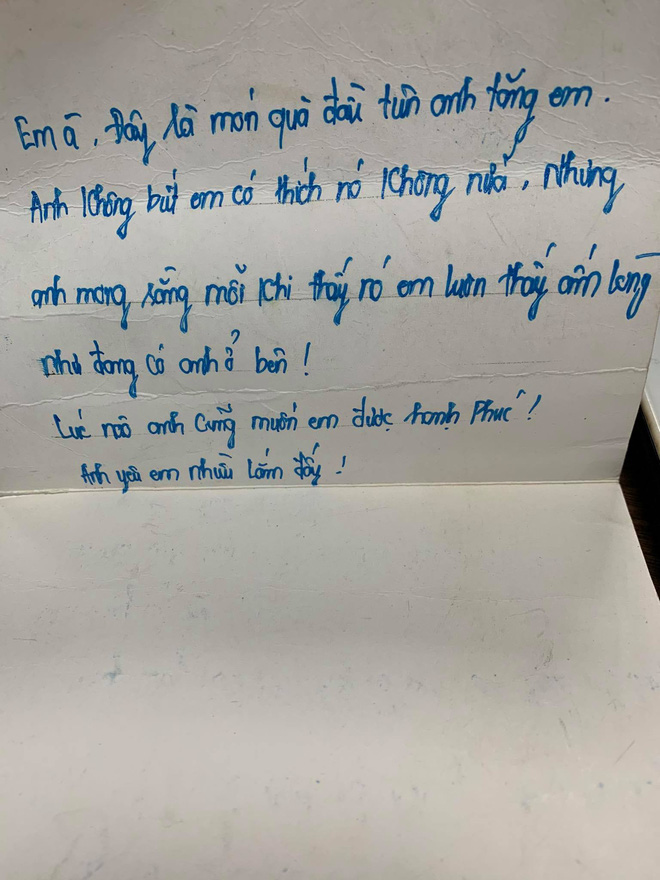 Em à, Đây là món quà đầu tiên anh tặng em.
Anh không biết em có thích nó không nữa, nhưng
anh mong rằng mỗi khi thấy nó em luôn thấy ấm lòng
như đang có anh ở bên!
Lúc nào anh cũng muốn em được hạnh phúc!
Anh yêu em nhiều lắm đấy!